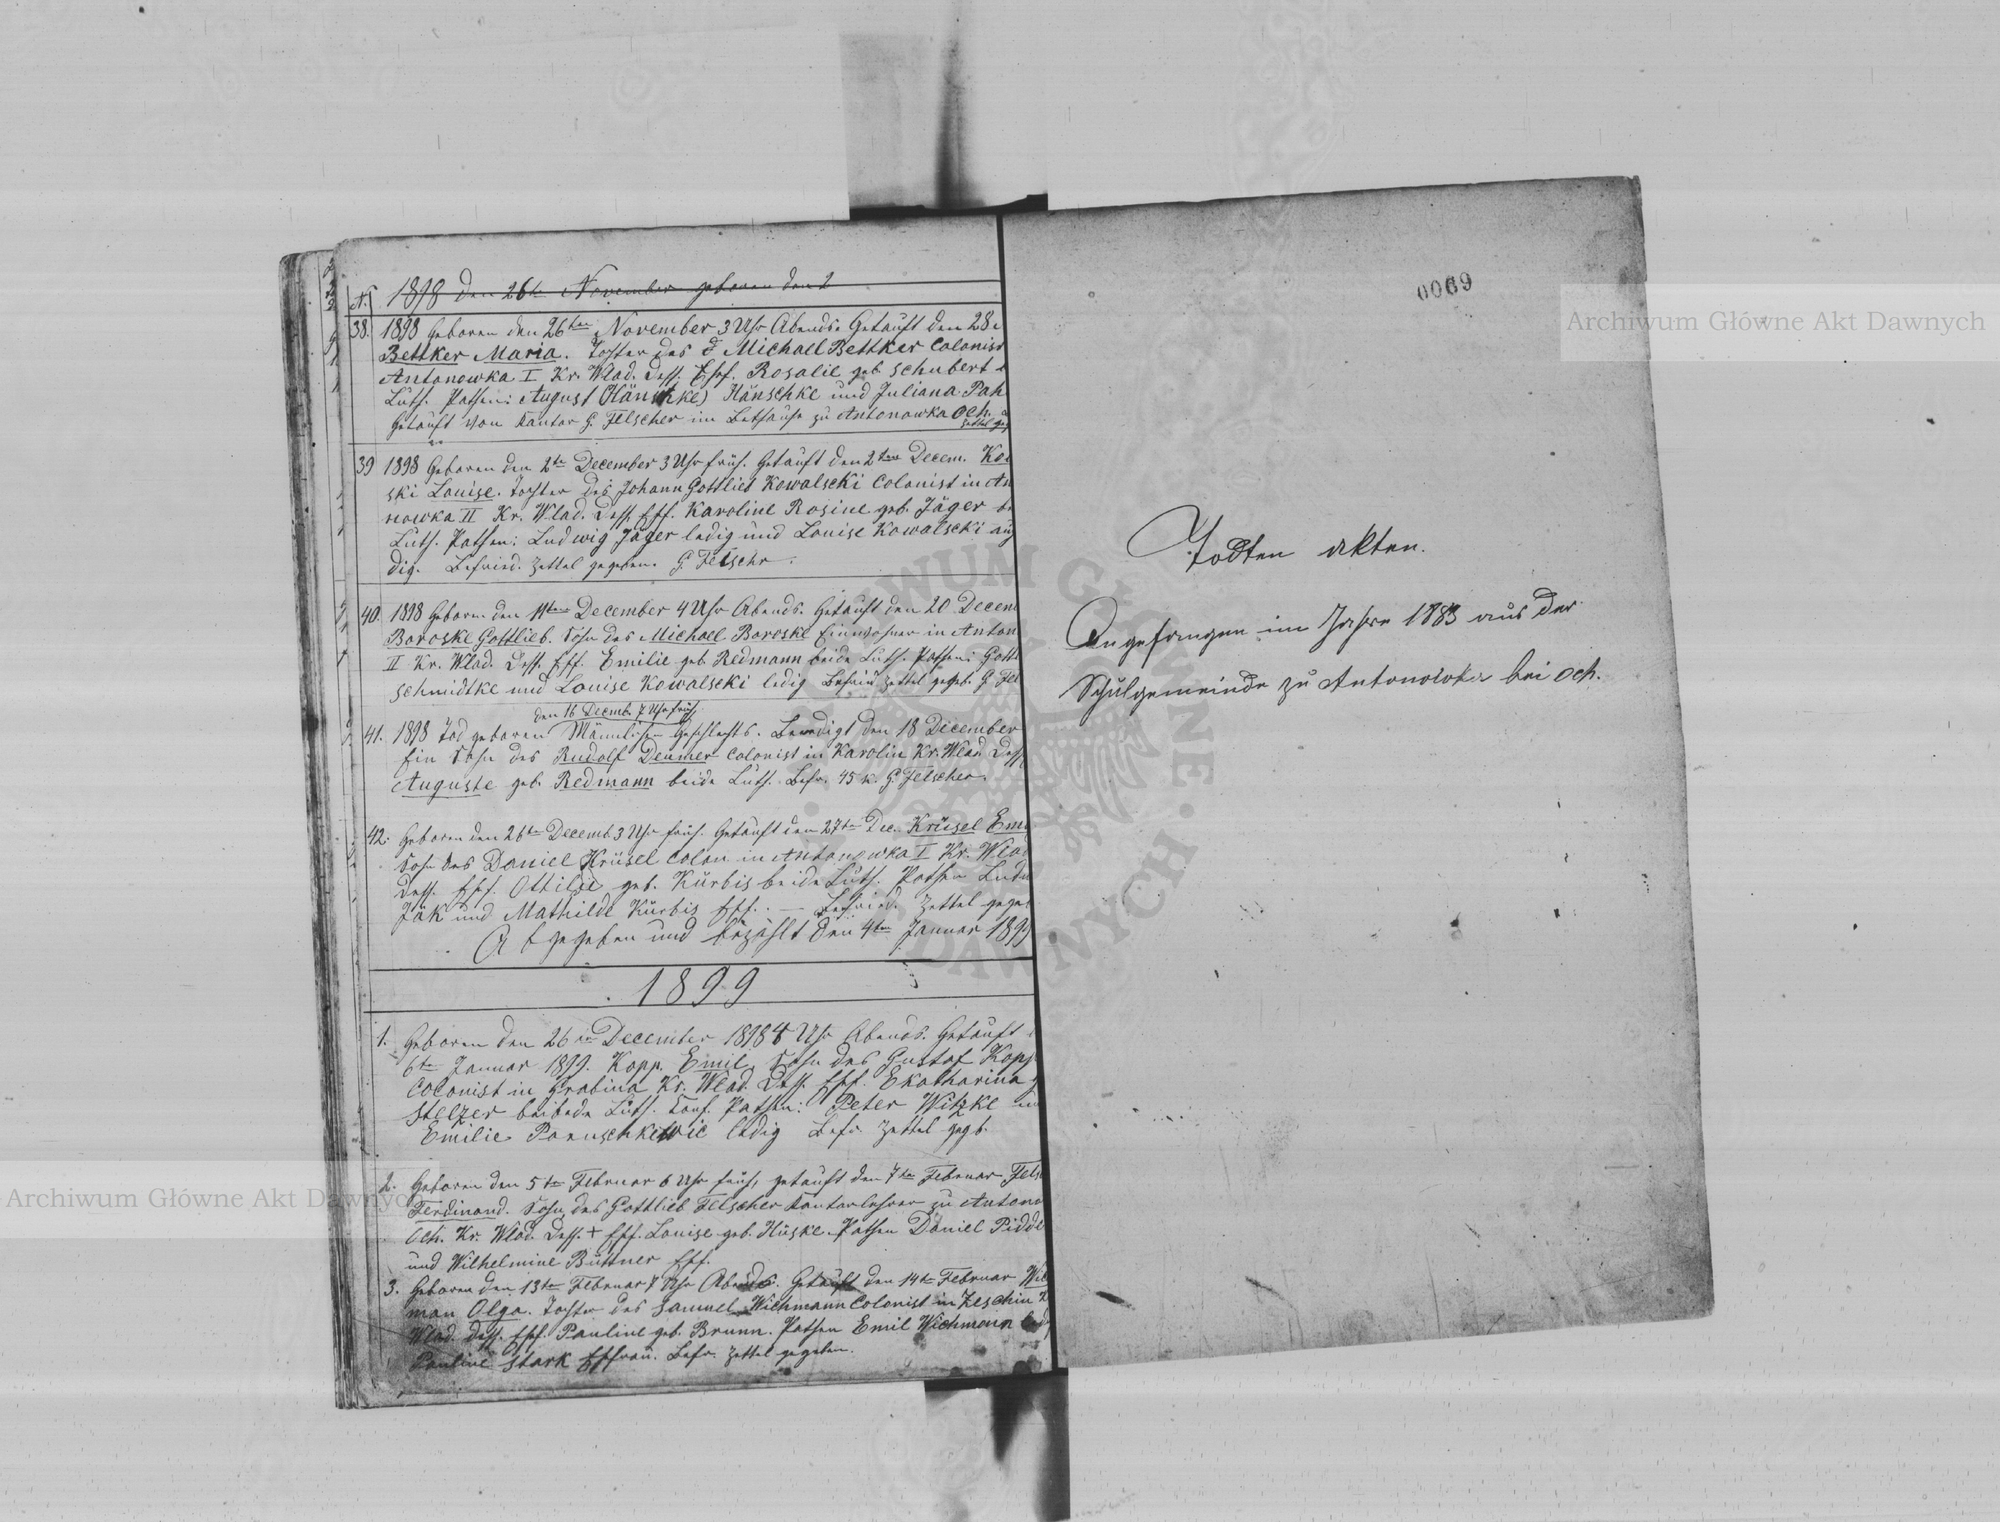 No 1898 den 26te November geboren den 2
38. 1898 Geboren den 26ten November 3 Uhr Abends. Getauft den 28
Bettker Maria. Tochter des Michael Bettker Colonist
Antonowka I Kr. Wlad. Dess. Ehf. Rosalie geb. Schubert
Luth. Pathen: August (Hänschke) Hänschke und Juliana Pah
Getauft von Kantor G. Felscher im Bethause zu Antonowka Och.
Zettel geg
39 1898 Geboren den 2te December 3 Uhr früh. Getauft den 2ten Decem. Kow
ski Louise. Tochter des Johann Gottlieb Kowalscki Colonist in An
nowka II Kr. Wlad. Dess. Ehf. Karoline Rosine geb. Jäger be
Luth. Pathen: Ludwig Jäger ledig und Louise Kowalscki auch
dig. Befried. Zettel gegeben. G. Felschr.
40. 1898 Geboren den 11ten December 4 Uhr Abends. Getauft den 20 Decem
Boroske Gottlieb. Sohn des Michael Boroske Einwohner in Anton
II Kr. Wlad. Dess. Ehf. Emilie geb. Redmann beide Luth. Pathen: Gottl
Schmidtke und Louise Kowalscki ledig Befried Zettel gegeb. G Fel
den 16 Decemb. 7 Uhr früh
41. 1898 Tod geboren Männlichen Geschlechts. Beerdigt den 18 December
Ein Sohn des Rudolf Deumer Colonist in Karolin Kr. Wlad. Dess
Auguste geb. Redmann beide Luth. Befr. 45 K. G. Felscher.
42. Geboren den 26te Decemb. 3 Uhr früh. Getauft den 27te Dec. Krüsel Emi
Sohn des Daniel Krüsel Colon in Antonowka I Kr. Wlad
Dess. Ehf. Ottilie geb. Kürbis beide Luth. Pathen Ludw
Jäk und Mathilde Kürbis Ehf. — Befried. Zettel gege
Abgegeben und bezahlt den 4ten Januar 1899
1899
1. Geboren den 26ten December 1898 Uhr Abends. Getauft
6te Januar 1899. Kopp. Emil. Sohn des Gustaf Kopp
Colonist in Grabina Kr. Wlad. Dess. Ehf. Ekatharina g
Stelzer beibede Luth. Conf. Pathen: Peter Witzke un
Emilie Paruschkewic ledig Befr Zettel gegb.
2. Geboren den 5te Februar 6 Uhr früh, getauft den 7te Februar Fels
Ferdinand. Sohn des Gottlieb Felscher Kantorlehrer zu Antono
Och. Kr. Wlad. Dess. + Ehf. Louise geb. Hüske. Pathen Daniel Pidde
und Wilhelmine Büttner Ehf.
3. Geboren den 13te Februar Uhr Abends. Getauft den 14te Februar Wich
man Olga. Tochter des Samuel Wichmann Colonist in Zeschin K
Wlad. Dess. Ehf. Pauline geb. Brunn. Pathen Emil Wichmann led
Pauline Stark Ehfrau. Befr. Zettel gegeben.
0069
Todten akten.
Angefangen im Jahre 1883 aus der
Schulgemeinde zu Antonowka bei Och.
Archiwum Główne Akt Dawnych
Archiwum Główne Akt Dawnych
ARCHIWUM GŁÓWNE AKT DAWNYCH